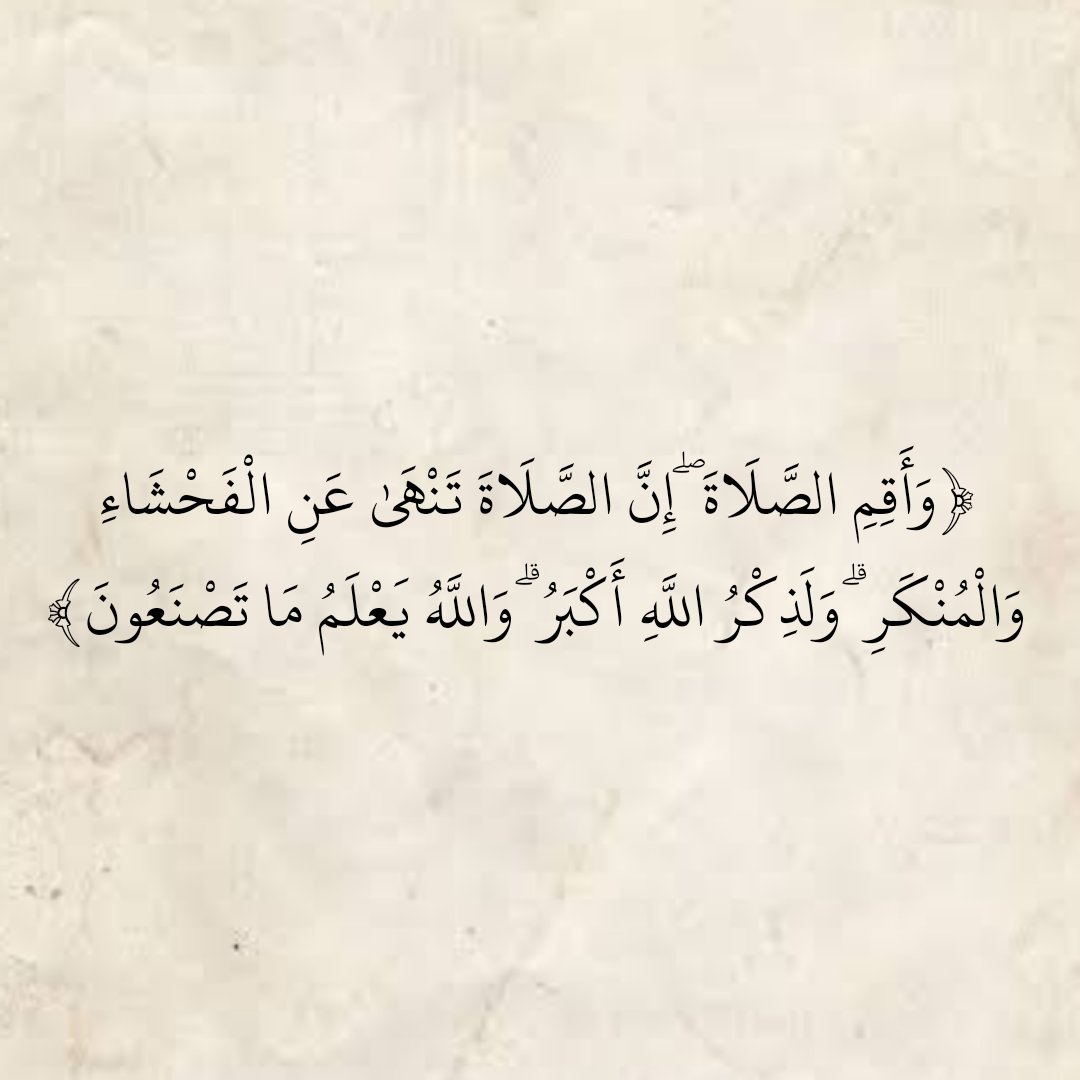 ﴿وَأَقِمِ الصَّلَاةَ ۖ إِنَّ الصَّلَاةَ تَنْهَىٰ عَنِ الْفَحْشَاءِ
وَالْمُنْكَرِ ۗ وَلَذِكْرُ اللَّهِ أَكْبَرُ ۗ وَاللَّهُ يَعْلَمُ مَا تَصْنَعُونَ﴾